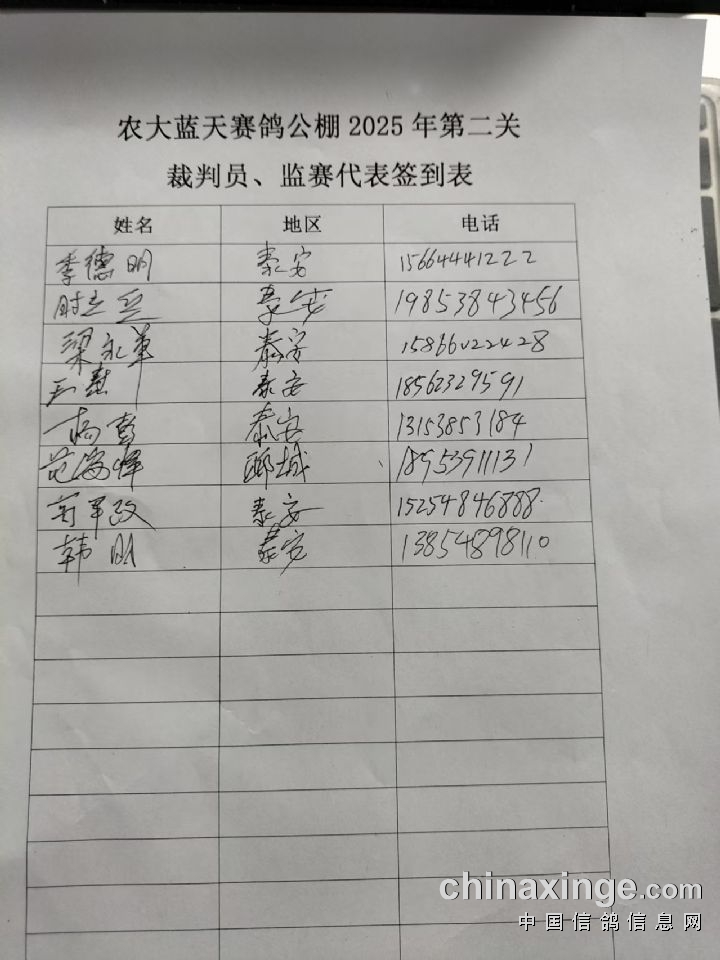 农大蓝天赛鸽公棚 2025 年第二关
裁判员、监赛代表签到表
姓名 地区 电话
季德明 泰安 15664441222
泰安 19853843456
梁永革 泰安 15866022428
泰安 18562329591
杨 泰安 13153853184
范海峰 聊城 18953911131
泰安 15254846888
韩明 泰安 13854898110
chinaxinge.com
中国信鸽信息网